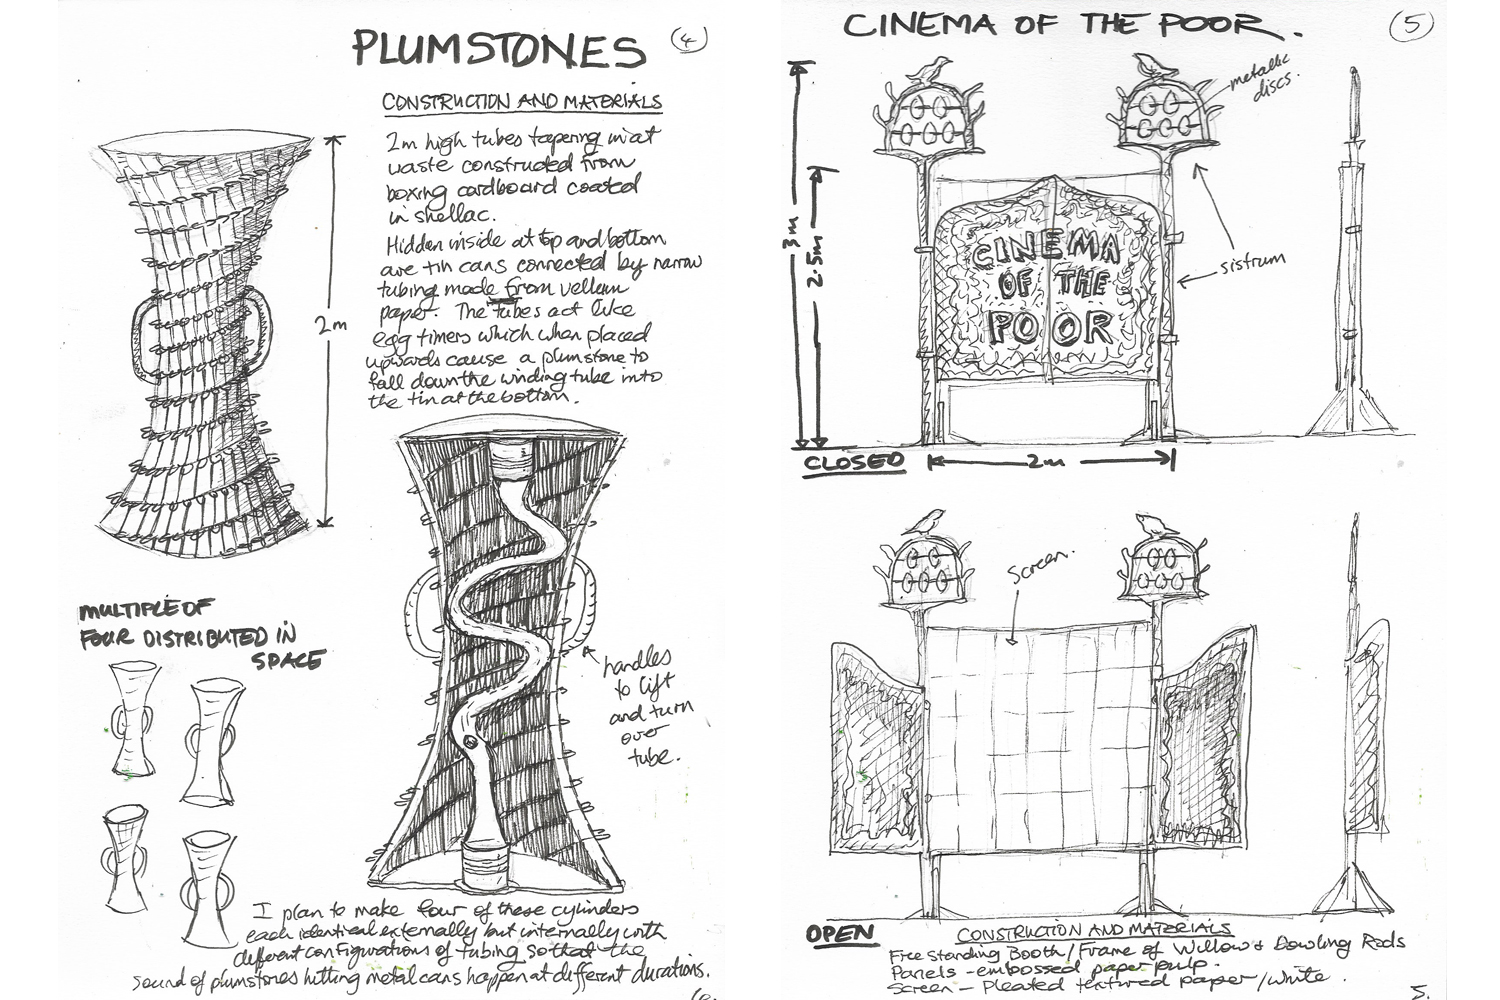 PLUMSTONES
4
CONSTRUCTION AND MATERIALS
2m high tubes tapering in at
waste constructed from
boxing cardboard coated
in shellac.
Hidden inside at top and bottom
are tin cans connected by narrow
tubing made from vellum
paper. The tubes act like
egg timers which when placed
upwards cause a plumstone to
fall down the winding tube into
the tin at the bottom.
2m
MULTIPLE OF
FOUR DISTRIBUTED IN
SPACE
handles
to lift
and turn
over
tube.
I plan to make four of these cylinders
each identical externally but internally with
different configurations of tubing so that the
sound of plumstones hitting metal cans happen at different durations.
CINEMA OF THE POOR.
5
metallic
discs.
3m
2.5m
CINEMA
OF THE
POOR
sistrum
CLOSED
2m
Screen.
OPEN
CONSTRUCTION AND MATERIALS
Free Standing Booth/Frame of Willow + Dowling Rods
Panels - embossed paper pulp.
Screen - Pleated textured paper/white.
5.